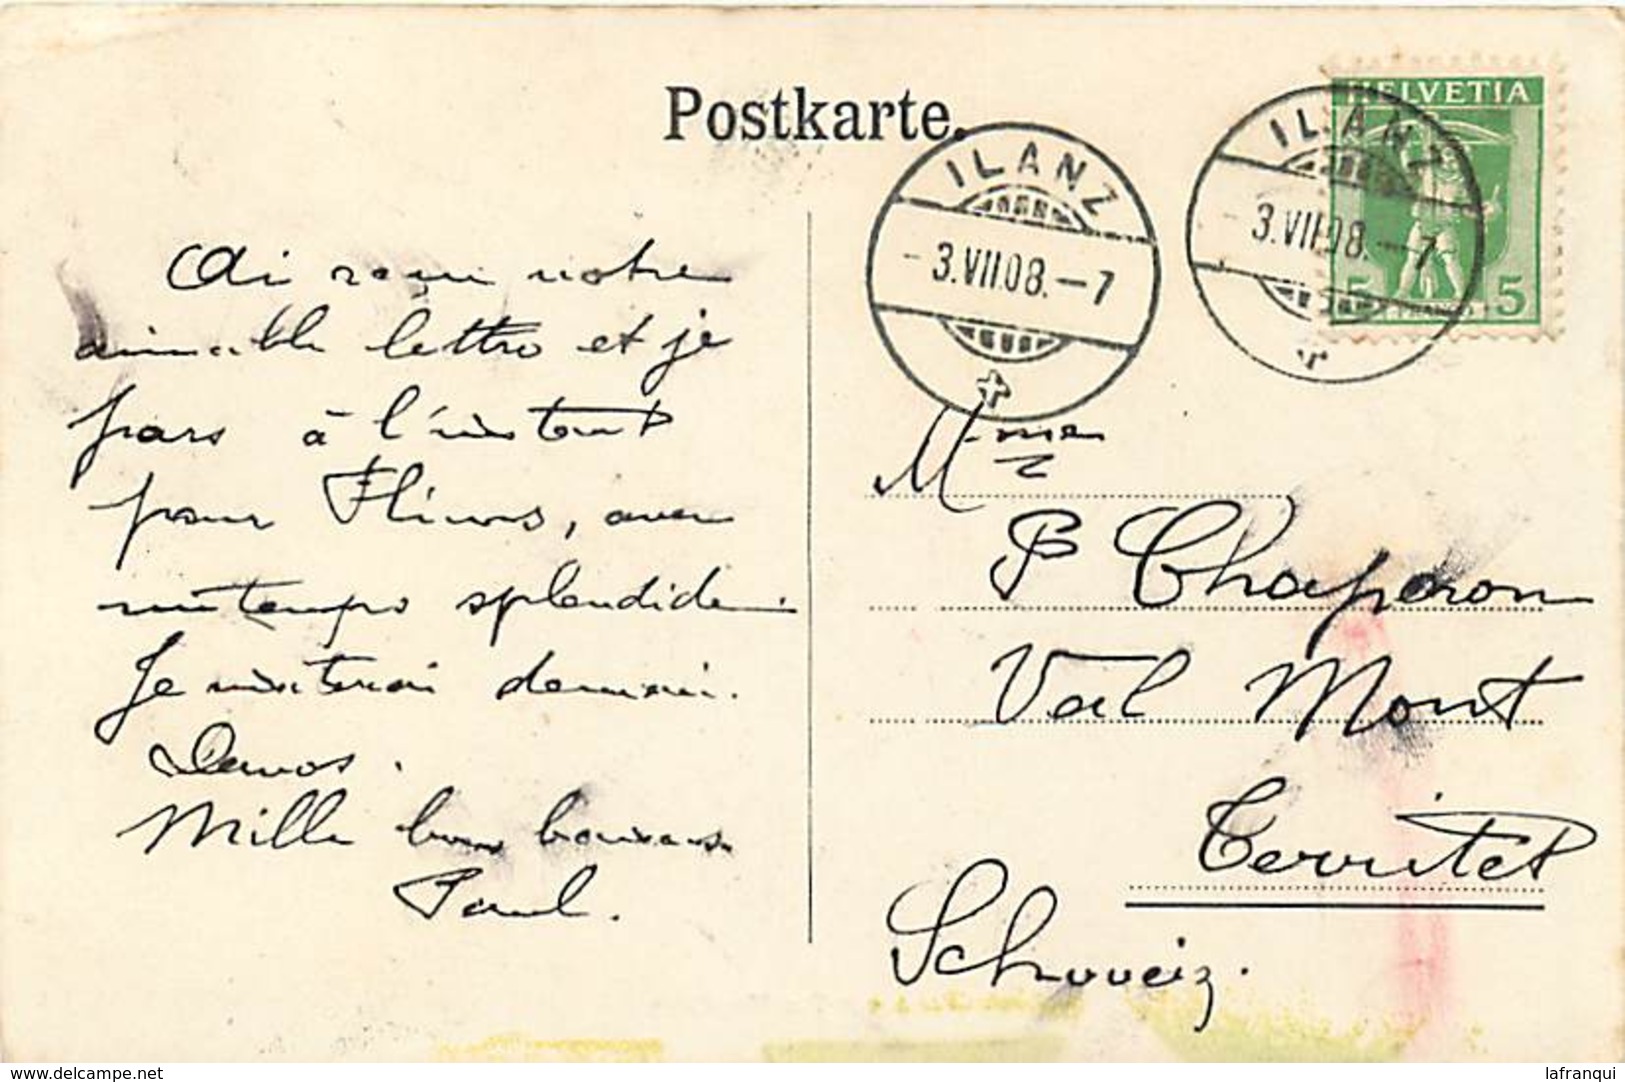 Postkarte.
HELVETIA
5 5
FRANCO
ILANZ
-3.VII.08.-7
ILANZ
-3.VII.08.-7
Ai reçu votre
aimable lettre et je
pars à l'instant
pour Flims, avec
un temps splendide.
Je visiterai demain
Davos.
Mille bons baisers
Paul.
Mme
P Chaperon
Val Mont
Territet
Schweiz.
delcampe.net
lafranqui